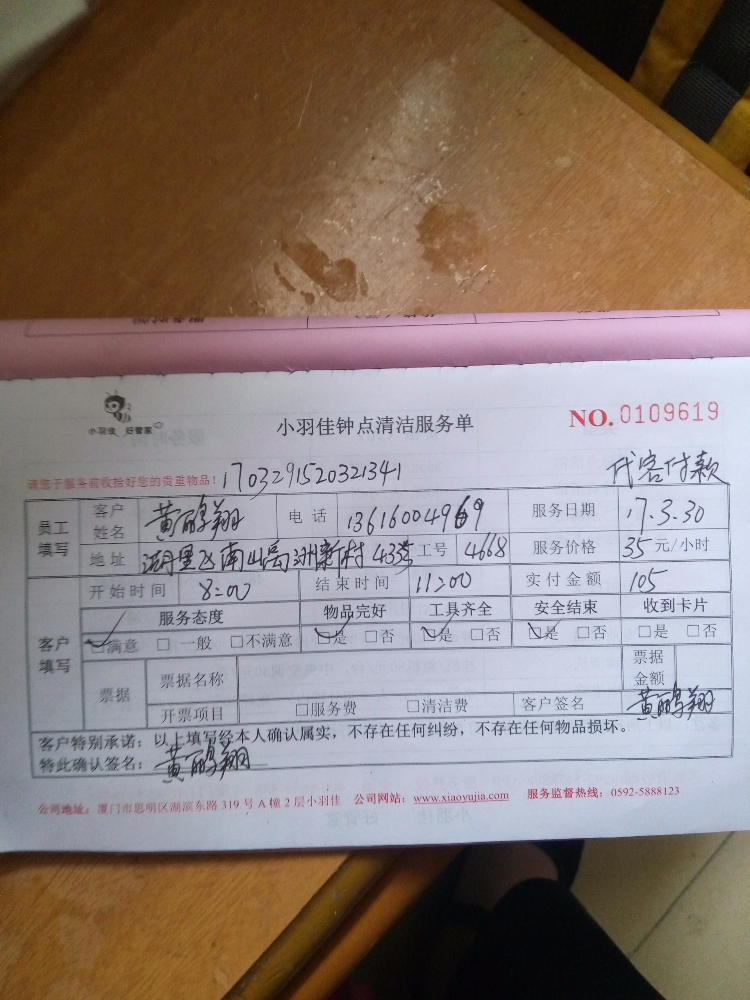 小羽佳 好管家
小羽佳钟点清洁服务单
NO. 0109619
请您于服务前收拾好您的贵重物品!
1703291520321341
代客付款
员工填写 客户姓名 黄鹂翔 电话 13616004969 服务日期 17.3.30
地址 南山高洲新村43 工号 4668 服务价格 35 元/小时
客户填写 开始时间 8:00 结束时间 11:00 实付金额 105
服务态度 物品完好 工具齐全 安全结束 收到卡片
☑满意 □一般 □不满意 ☑是 □否 ☑是 □否 ☑是 □否 □是 □否
票据 票据名称 票据金额
开票项目 □服务费 □清洁费 客户签名 黄鹂翔
客户特别承诺:以上填写经本人确认属实,不存在任何纠纷,不存在任何物品损坏。
特此确认签名: 黄鹂翔
公司地址:厦门市思明区湖滨东路 319 号 A 幢 2 层小羽佳 公司网站:www.xiaoyujia.com 服务监督热线:0592-5888123